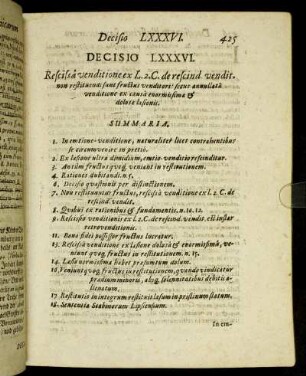 Decisio LXXXVI. 425
DECISIO LXXXVI.
Rescissâ venditione ex L. 2. C. de rescind. vendit.
non restituendi sunt fructus venditori: secus annullatâ
venditione ex causâ enormissimæ &
dolosæ læsionis.
SUMMARIA.
1. In emtione-venditione, naturaliter licet contrahentibus
se circumvenire in pretio.
2. Ex læsione ultra dimidium, emtio-venditio rescinditur.
3. Antiam fructus quoq; veniant in restitutionem.
4. Rationes dubitandi. n. 5.
6. Decisio quæstionis per distinctionem.
7. Non restituuntur fructus, rescissâ venditione ex l. 2. C. de
rescind. vendit.
8. Quibus ex rationibus & fundamentis. n. 10. 12.
9. Rescissio venditionis ex L. 2. C. de rescind. vendit. est instar
retrovenditionis.
11. Bonæ fidei possessor fructus lucratur.
13. Rescissâ venditione ex læsione dolosâ & enormissimâ, ve-
niunt quoq; fructus in restitutionem. n. 15.
14. Læsio enormissima habet præsumtum dolum.
16. Veniunt quoq; fructus in restitutionem, quando vindicatur
prædium minoris, absq; solennitatibus debitis a-
lienatum.
17. Restitutio in integrum restituit læsum in pristinum statum.
18. Sententia Scabinorum Lipsensium.
In em-